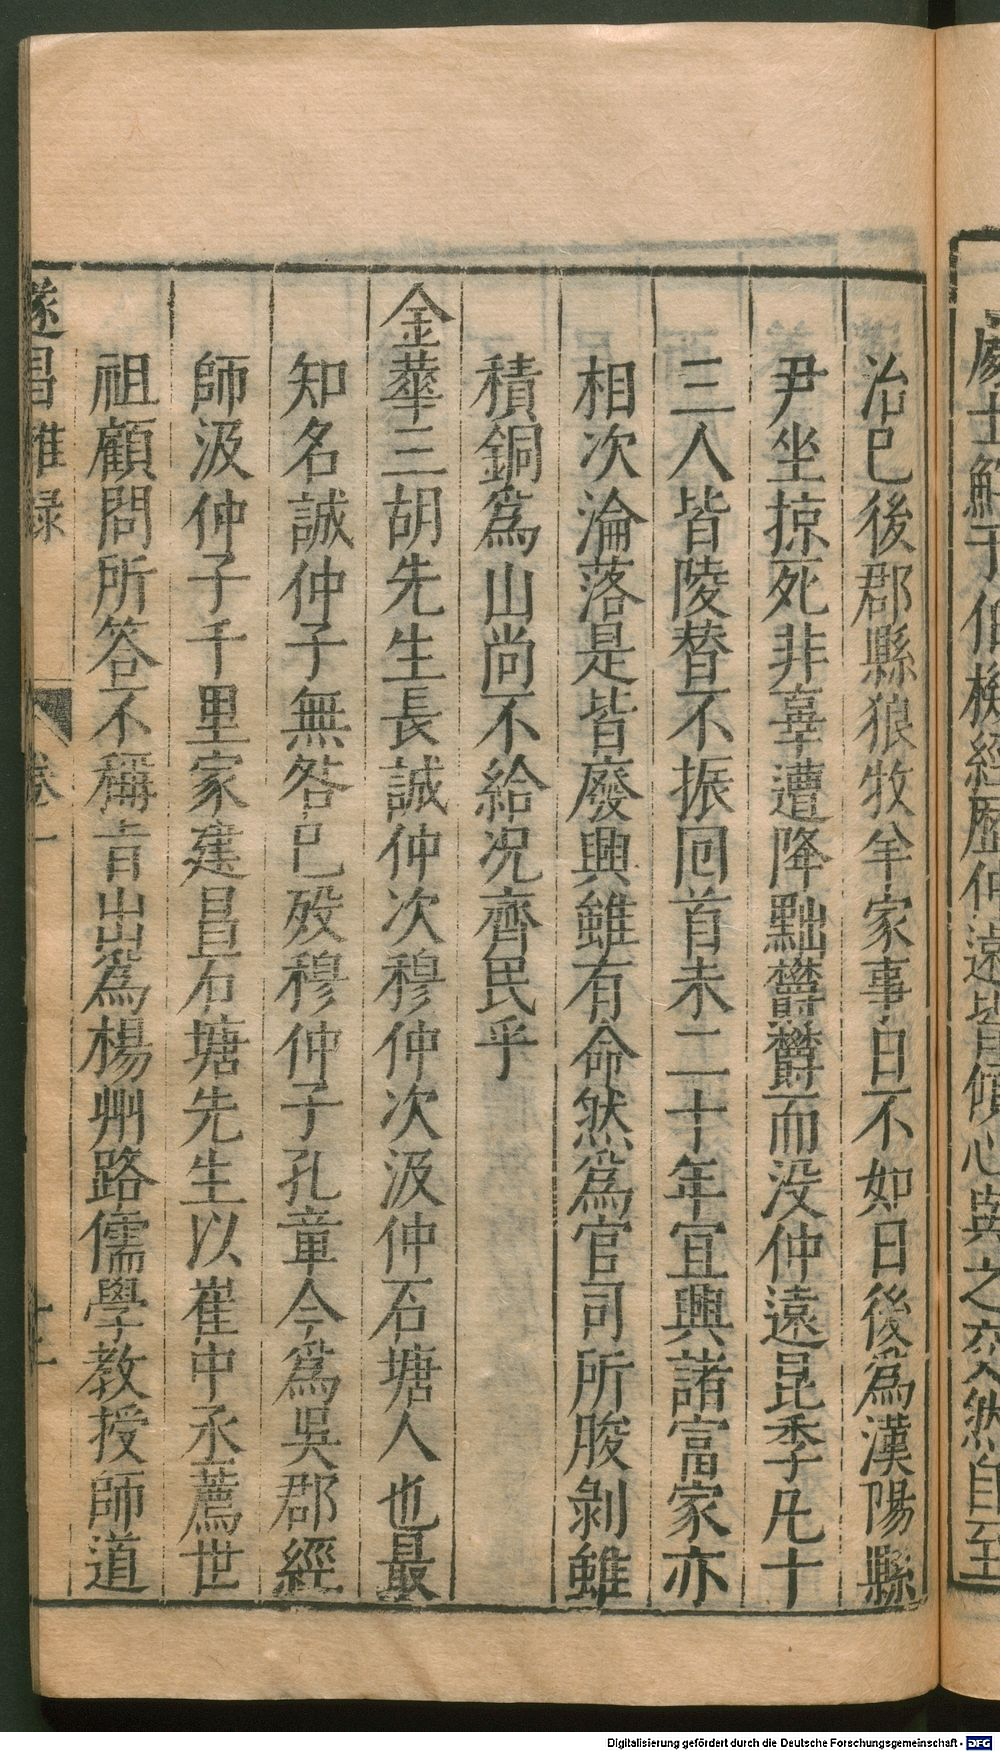 處士鮮于伯機經歷仲遠皆傾心與之交然自至
治已後郡縣狼牧羊家事日不如日後為漢陽縣
尹坐掠死非辜遭降黜欝欝而没仲遠昆季凡十
三人皆陵替不振囘首未二十年宜興諸富家亦
相次淪落是皆廢興雖有命然為官司所朘剝雖
積銅為山尚不給况齊民乎
金華三胡先生長誠仲次穆仲次汲仲石塘人也最
知名誠仲子無咎已殁穆仲子孔章今為吳郡經
師汲仲子千里家建昌石塘先生以崔中丞薦世
祖顧問所答不稱旨出為楊州路儒學教授師道
遂昌雜録 卷一
Digitalisierung gefördert durch die Deutsche Forschungsgemeinschaft - DFG